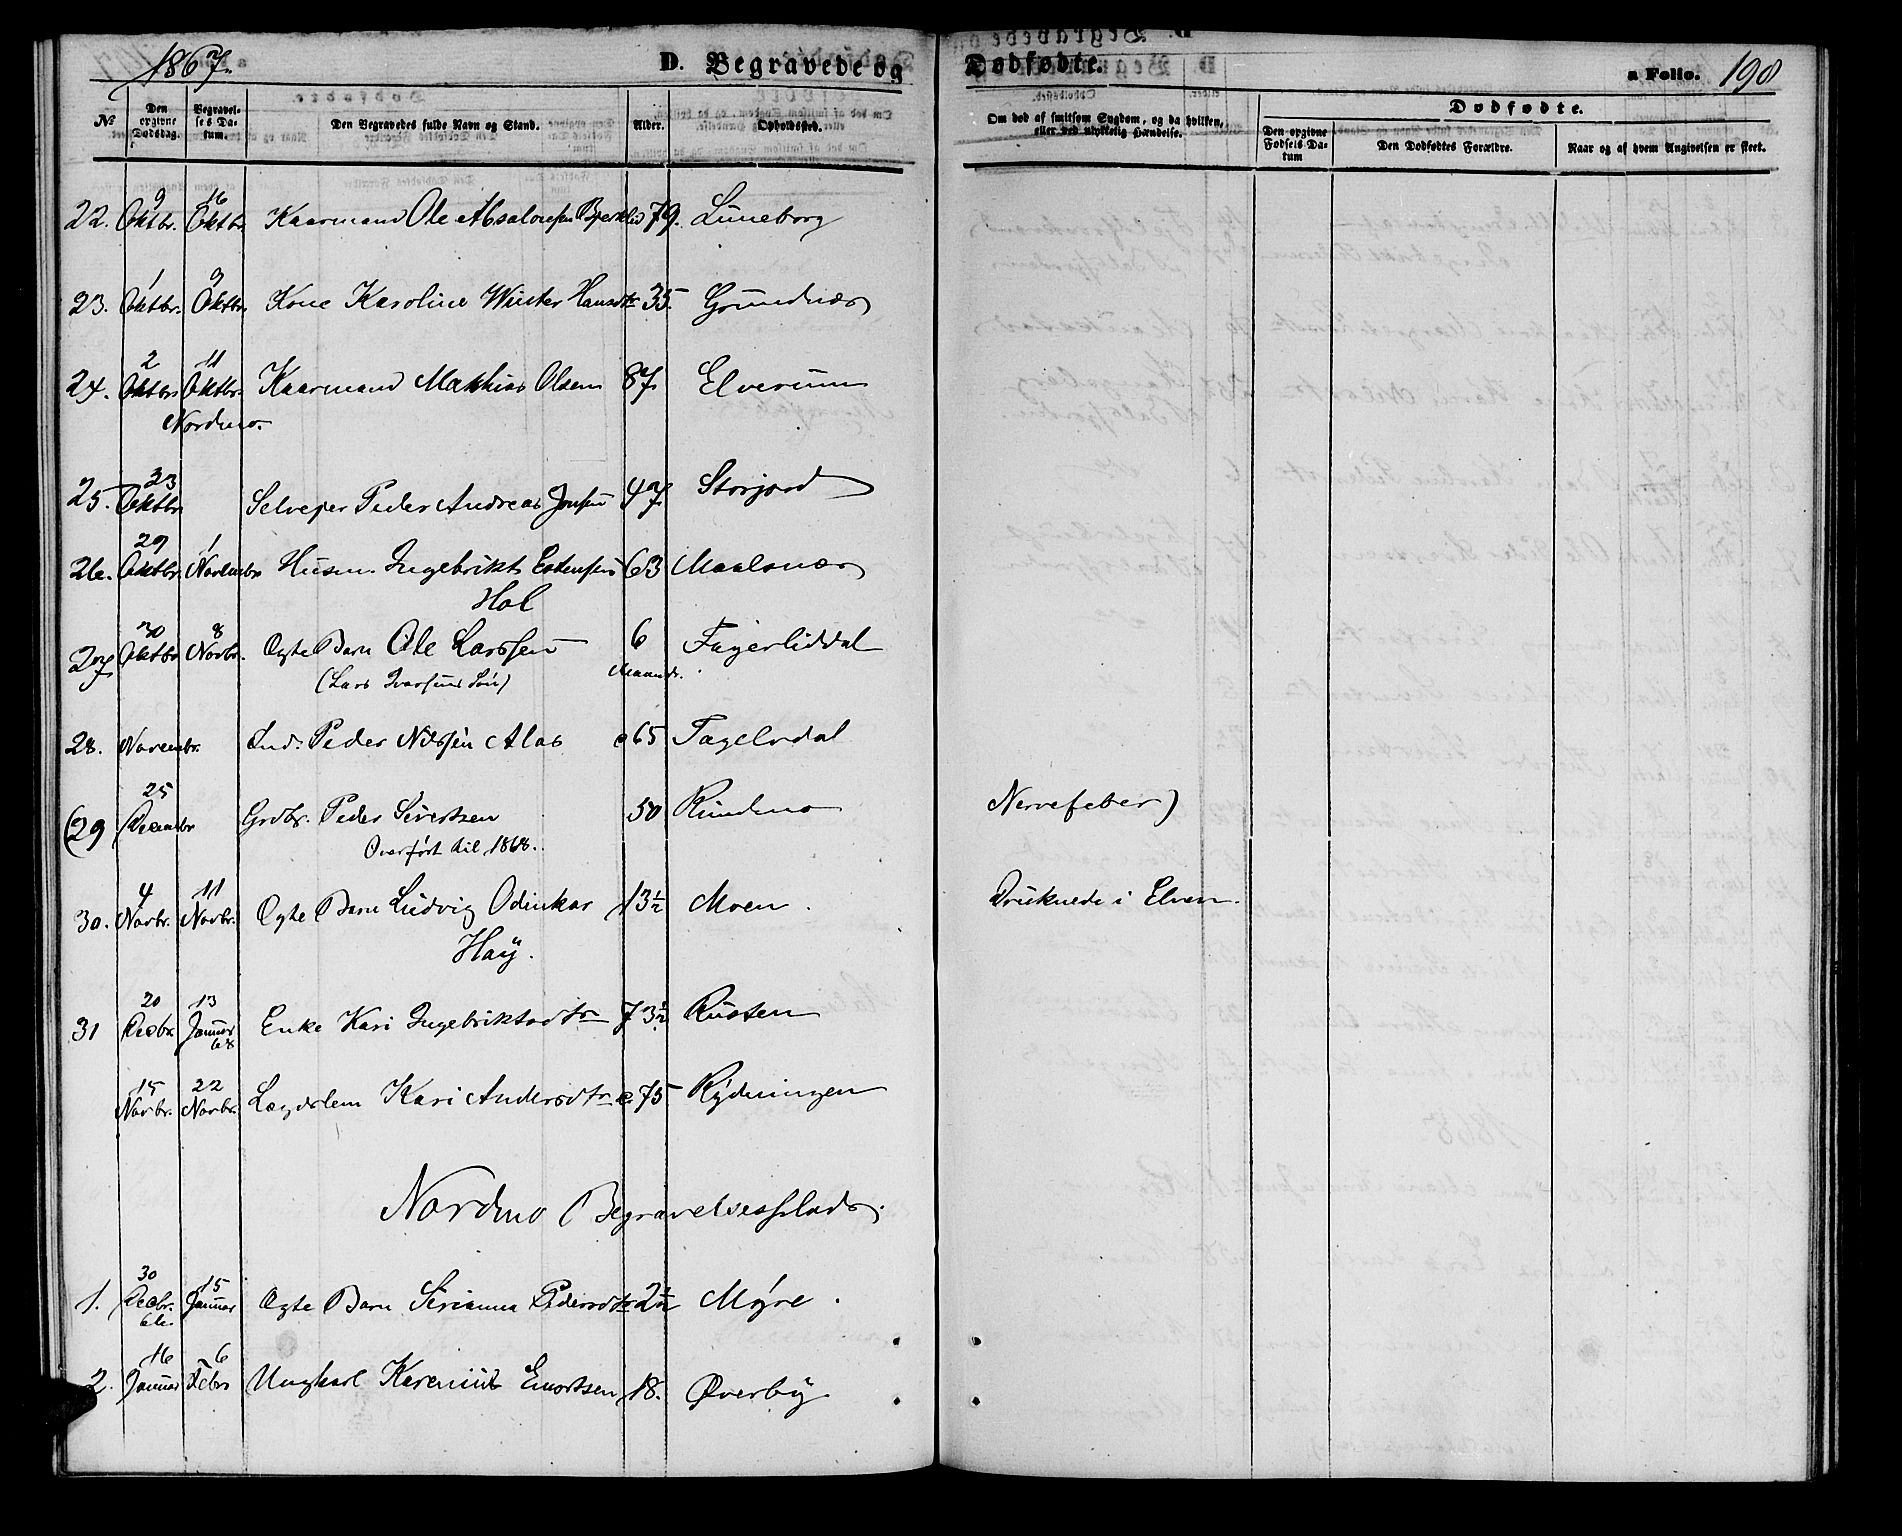 1867.
D. Begravede og Dødfødte.
a Folio. 198
No
Den opgivne Dødsdag.
Begravelses Datum.
Den Begravedes fulde Navn og Stand.
Alder.
Opholdssted.
Om død af smitsom Sygdom, og da hvilken, eller ved ulykkelig Hændelse.
Dødfødte.
Den opgivne Fødsels Datum
Den Dødfødtes Forældre.
Naar og af hvem Angivelsen er skeet.
22. 9 Oktbr. 16 Oktbr. Kaarmand Ole Absalonsen 79. Luneborg
23. 1 Oktbr. 9 Oktbr. Kone Karoline Winter Hansdtr 35. Grundnæs
24. 2 Oktbr. 11 Oktbr. Kaarmand Mathias Olsen 87 Elverum
Nordmo.
25. 23 Oktbr Selvejer Peder Andreas Jonsen 47 Storjord
26. 29 Oktbr. 1 Novembr Husm. Ingebrikt Estensen 63 Maalsnæs
Hol
27 30 Oktbr 8 Novbr. Ægte Barn Ole Larssen 6 Maaneder. Fagerliddal
(Lars Ivarsens Søn)
28. Novembr. Ind: Peder Nilssen Alas c 65 Fagelvdal
(29 25 Decembr Grdbr. Peder Sivertsen 50 Rundmo Nervefeber)
Overført til 1868.
30. 4 Novbr. 11 Novbr. Ægte Barn Ludvig Odinkar 13½ Moen. Druknede i Elven.
Høy.
31 20 Decbr. 13 Januar 68 Enke Kari Ingebriktsdtr 73½ Rusten
15 Novbr. 22 Novbr. Lægdslem Kari Andersdtr c. 75. Rydningen
Nordmo Begravelsesplads.
1. 30 Decbr. 66. 15 Januar Ægte Barn Sirianna Pedersdtr 2½ Myre.
2. 16 Januar 6 Febr Ungkarl Karenius Enertsen 18. Øverby